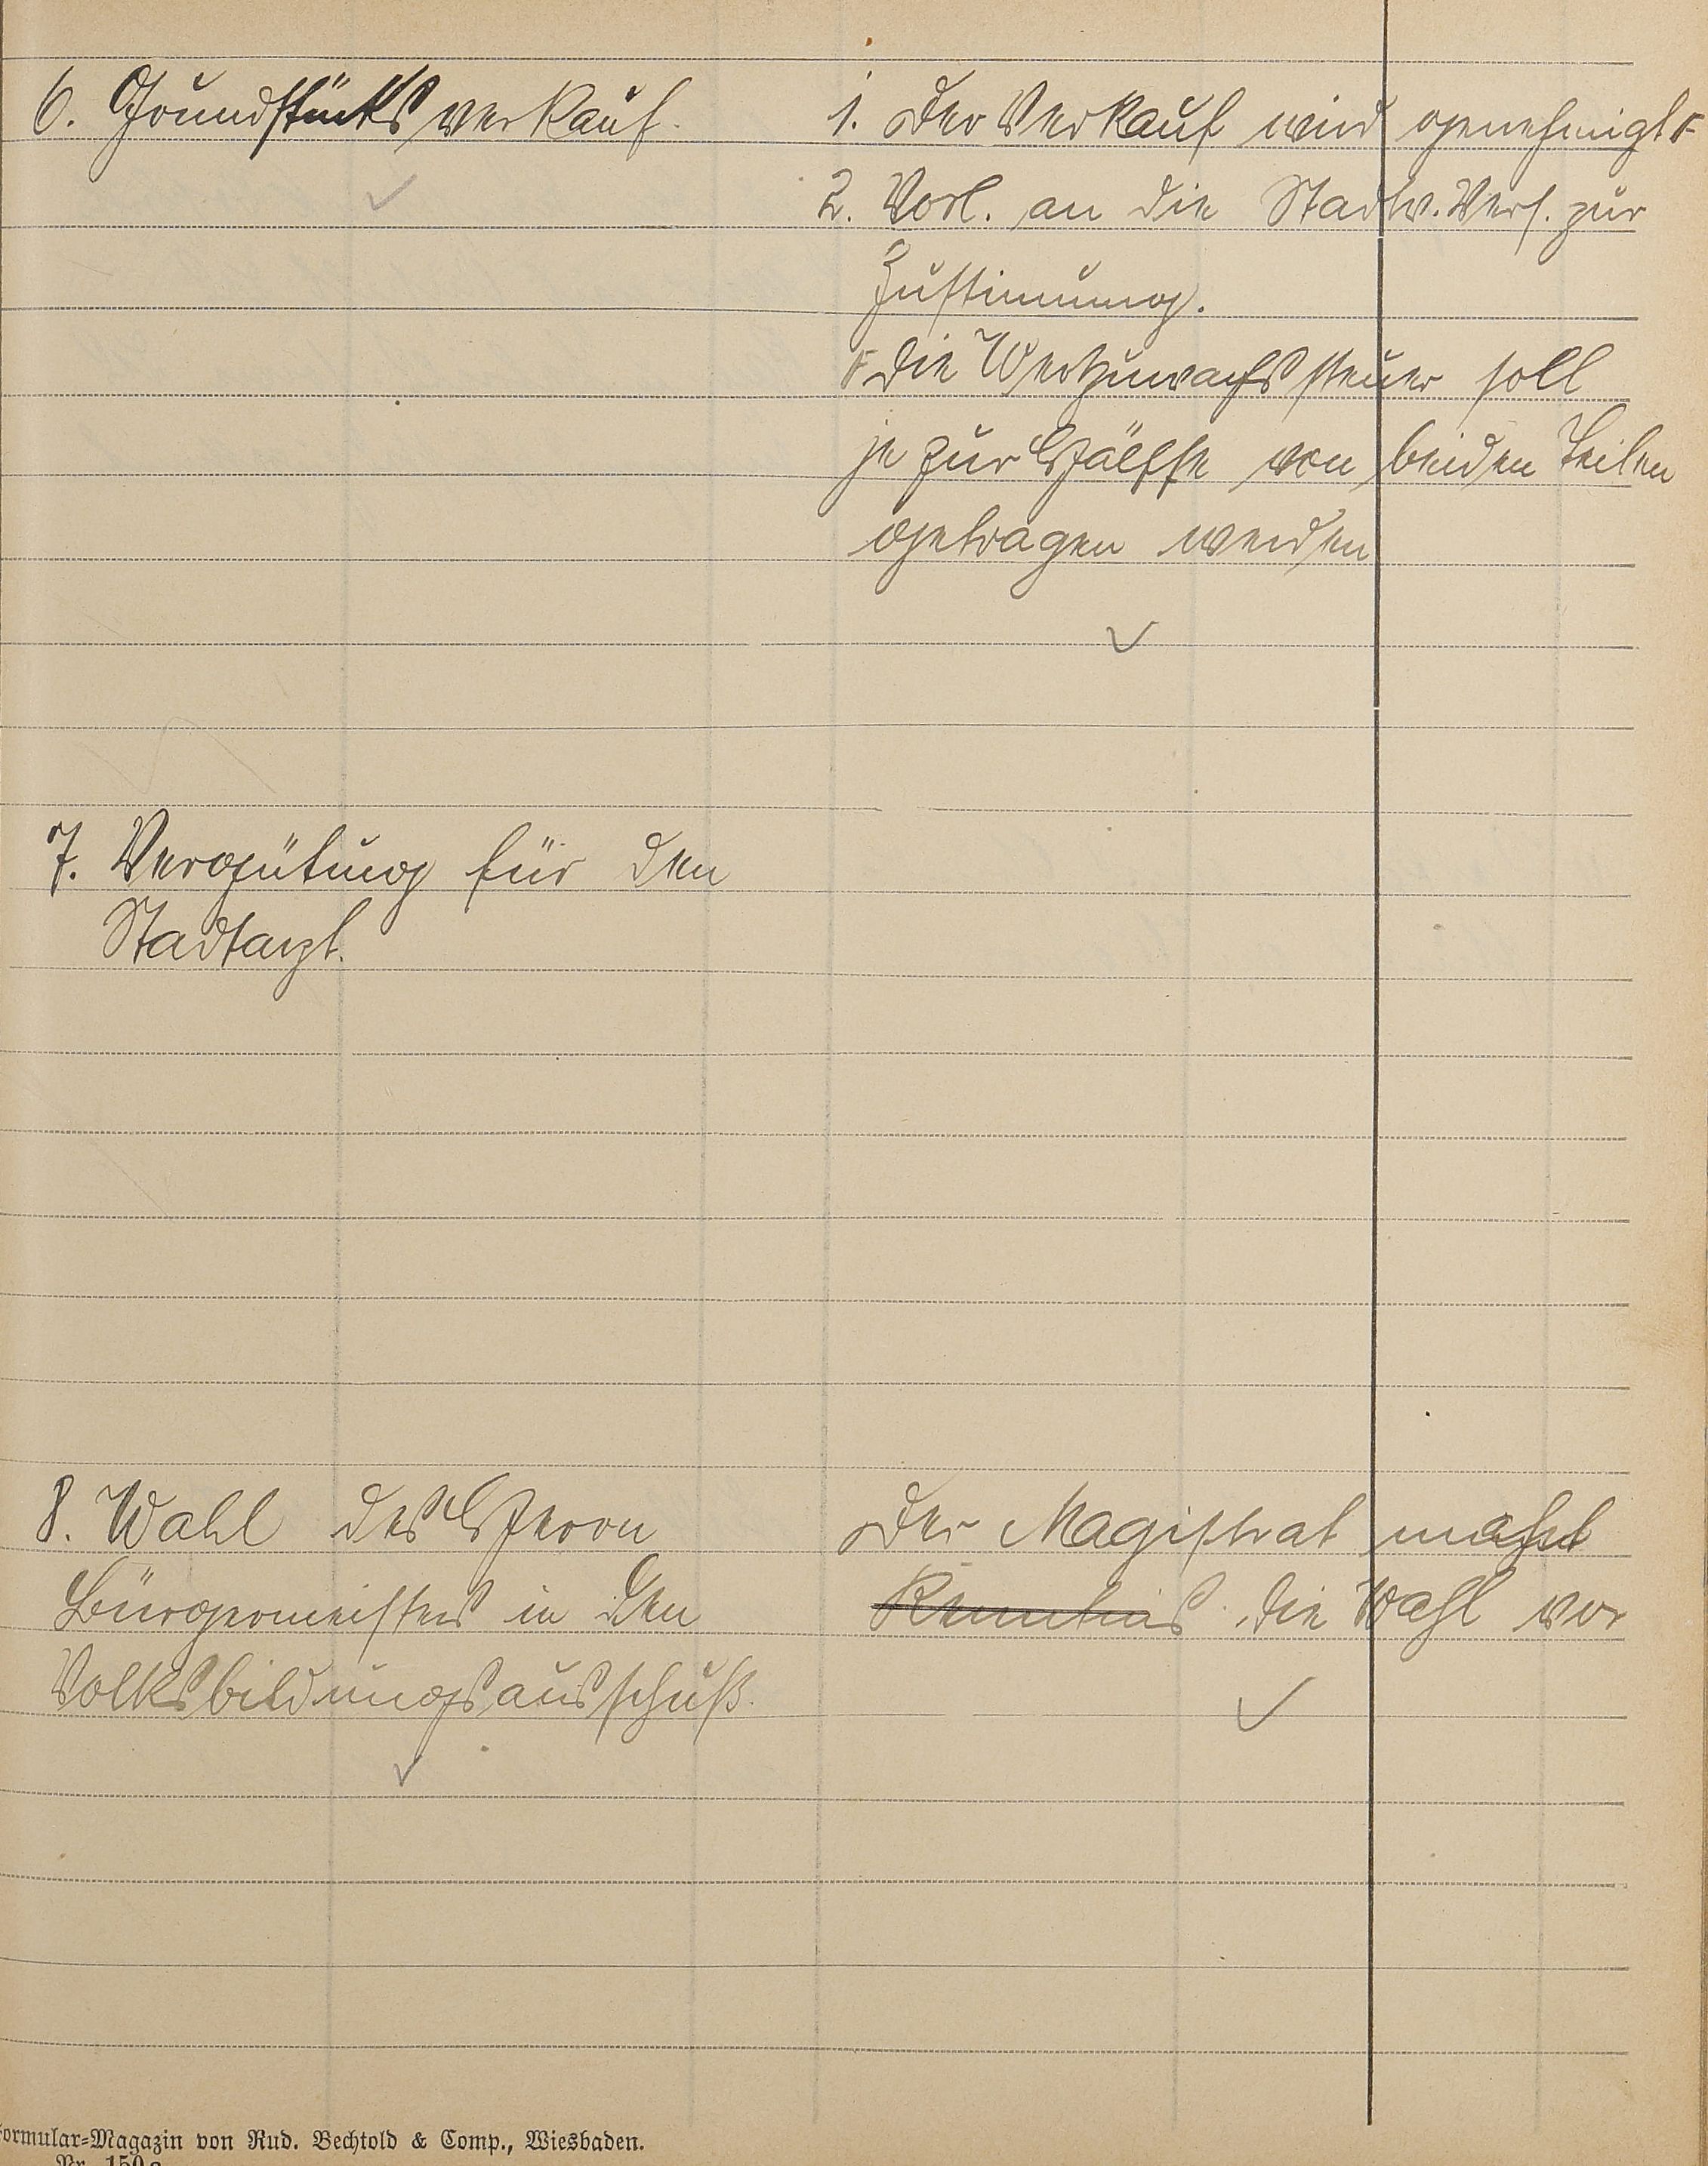 6. Grundstücksverkauf.
1. Der Verkauf wird genehmigt F
2. Vorl. an die Stadtv. Vers. zur
Zustimmung.
F Die Wertzuwachssteuer soll
je zur Hälfte von beiden Teilen
getragen werden
7. Vergütung für den
Stadtarzt.
8. Wahl des Herrn
Bürgermeisters in den
Volksbildungsausschuß.
Der Magistrat
Kenntnis die Wahl vor
Formular-Magazin von Rud. Bechtold & Comp., Wiesbaden.
Nr. 150